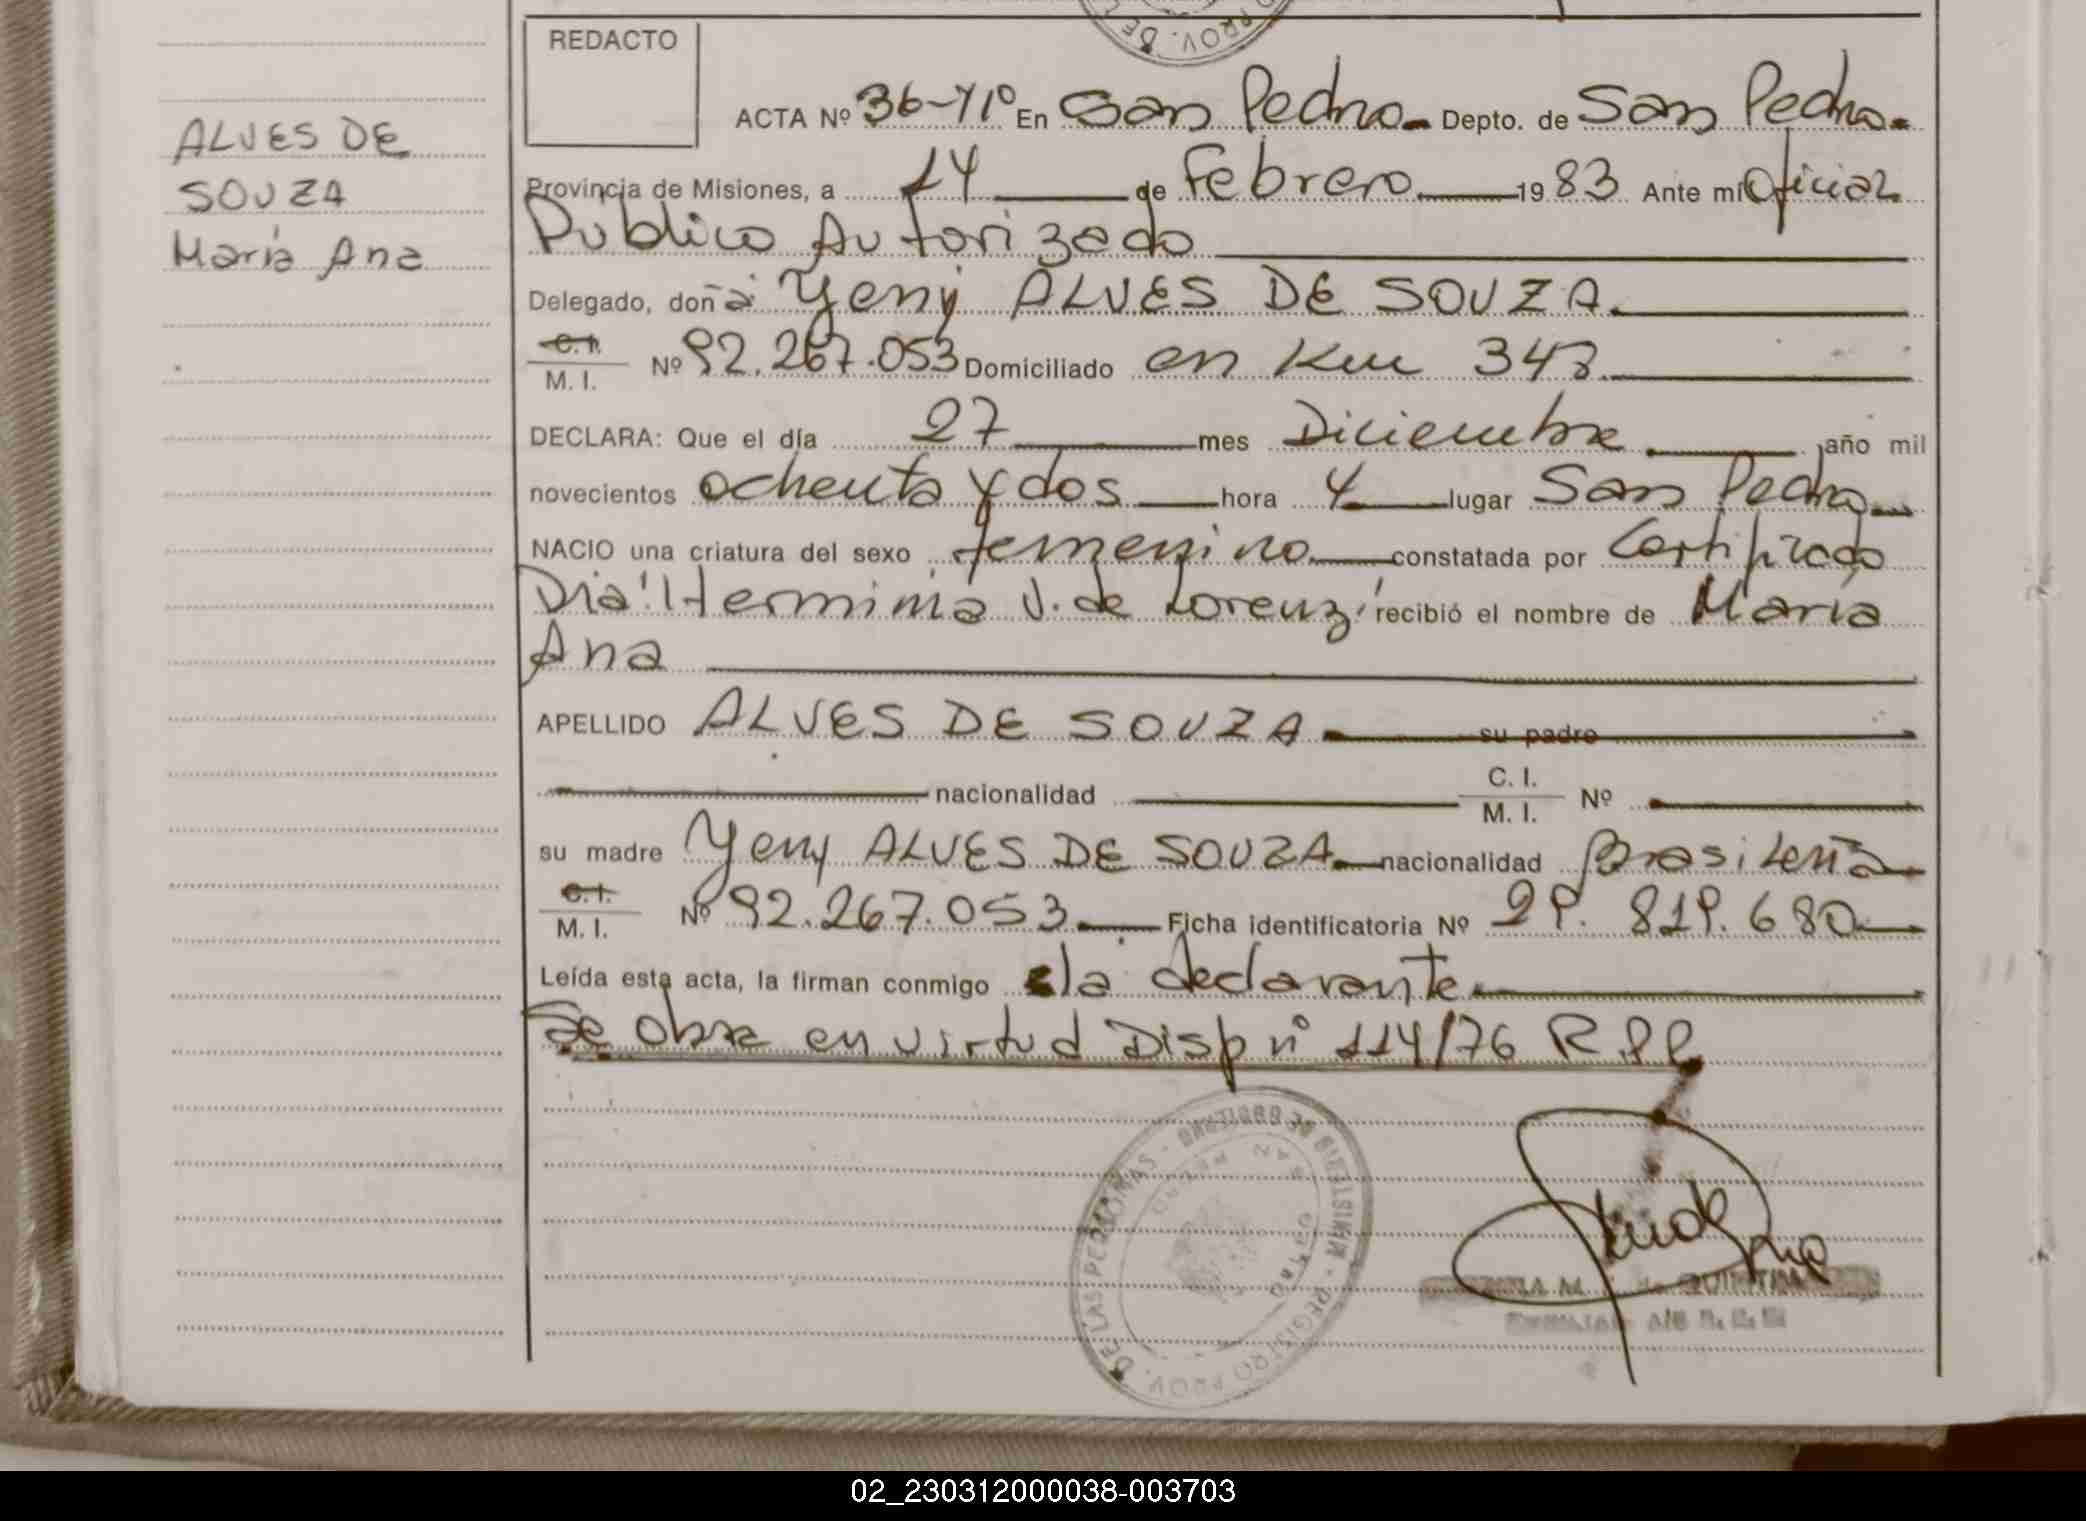 REDACTO
ALVES DE
SOUZA
María Ana
ACTA Nº 36-Y1º En San Pedro. Depto. de San Pedro.
Provincia de Misiones, a 14 de Febrero 1983 Ante mí Oficial
Publico Autorizado
Delegado, doña Yeny ALVES DE SOUZA.
C. I.
M. I. Nº 92.267.053 Domiciliado en Km 348.
DECLARA: Que el día 27 mes Diciembre año mil
novecientos ochenta y dos hora 4 lugar San Pedro
NACIO una criatura del sexo femenino constatada por Certificado
Dra. Herminia V. de Lorenz, recibió el nombre de María
Ana
APELLIDO ALVES DE SOUZA su padre
nacionalidad C. I.
M. I. Nº
su madre Yeny ALVES DE SOUZA nacionalidad Brasileña
C. I.
M. I. Nº 92.267.053 Ficha identificatoria Nº 29. 819. 680
Leída esta acta, la firman conmigo la declarante
Se obra en virtud Disp nº 114/76 R.P.P
MINISTERIO DE GOBIERNO - REGISTRO PROV. DE LAS PERSONAS
SAN PEDRO
QUINTINA
02_230312000038-003703